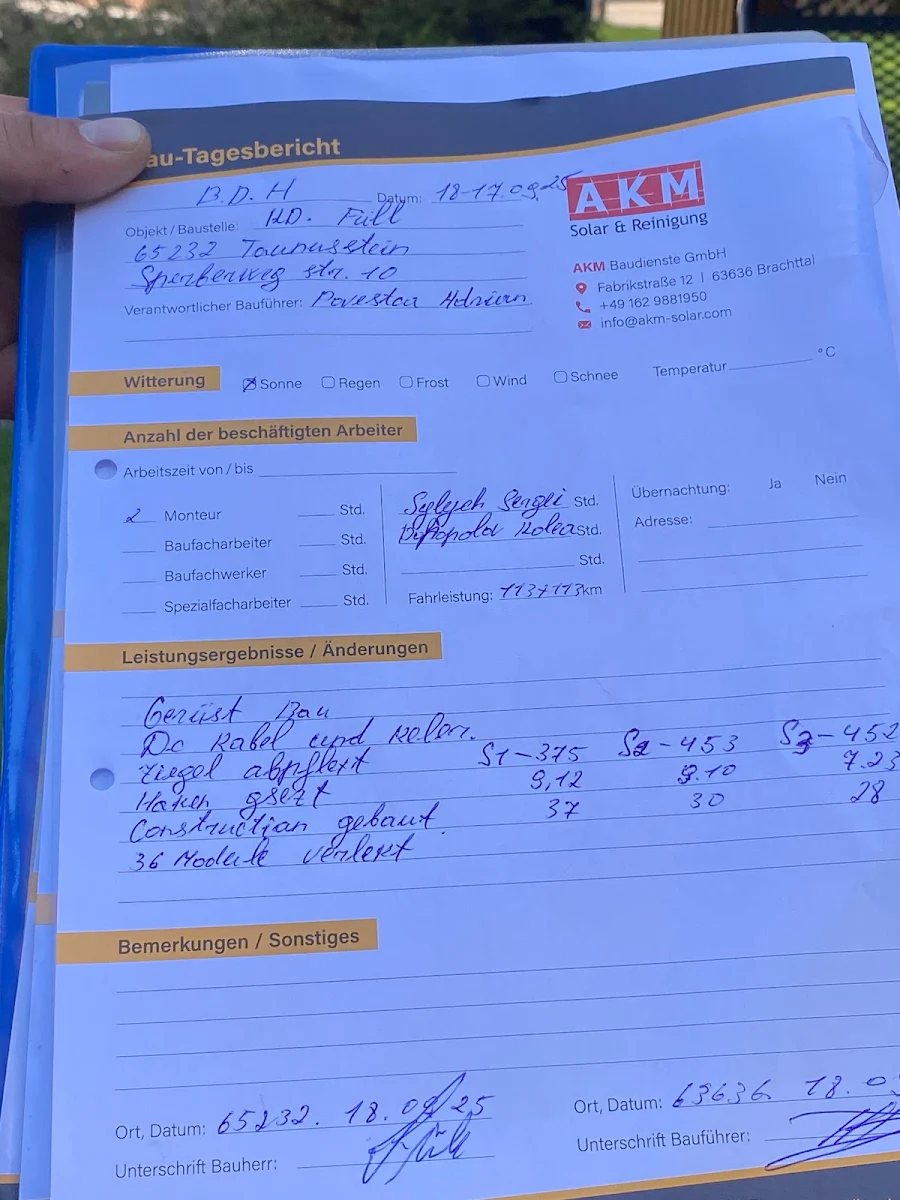 au-Tagesbericht
B.D.H Datum: 18-17.09.25
Objekt / Baustelle: KD. Füll
65232 Taunusstein
Sperberweg str. 10
Verantwortlicher Bauführer: Povestca Adrian
AKM
Solar & Reinigung
AKM Baudienste GmbH
Fabrikstraße 12 | 63636 Brachttal
+49 162 9881950
info@akm-solar.com
Witterung Sonne Regen Frost Wind Schnee Temperatur °C
Anzahl der beschäftigten Arbeiter
Arbeitszeit von / bis
2 Monteur Std.
Baufacharbeiter Std.
Baufachwerker Std.
Spezialfacharbeiter Std.
Sergei Std.
Kolea Std.
Std.
Fahrleistung: 113+113 km
Übernachtung: Ja Nein
Adresse:
Leistungsergebnisse / Änderungen
Gerüst Bau
Dc Kabel und
Ziegel abpflext S1-375 S2-453 S3-452
Haken gsezt 9,12 9.10 7.23
Construction gebaut. 37 30 28
36 Module verlext
Bemerkungen / Sonstiges
Ort, Datum: 65232. 18.09/25
Unterschrift Bauherr:
Ort, Datum: 63636. 18.0
Unterschrift Bauführer: